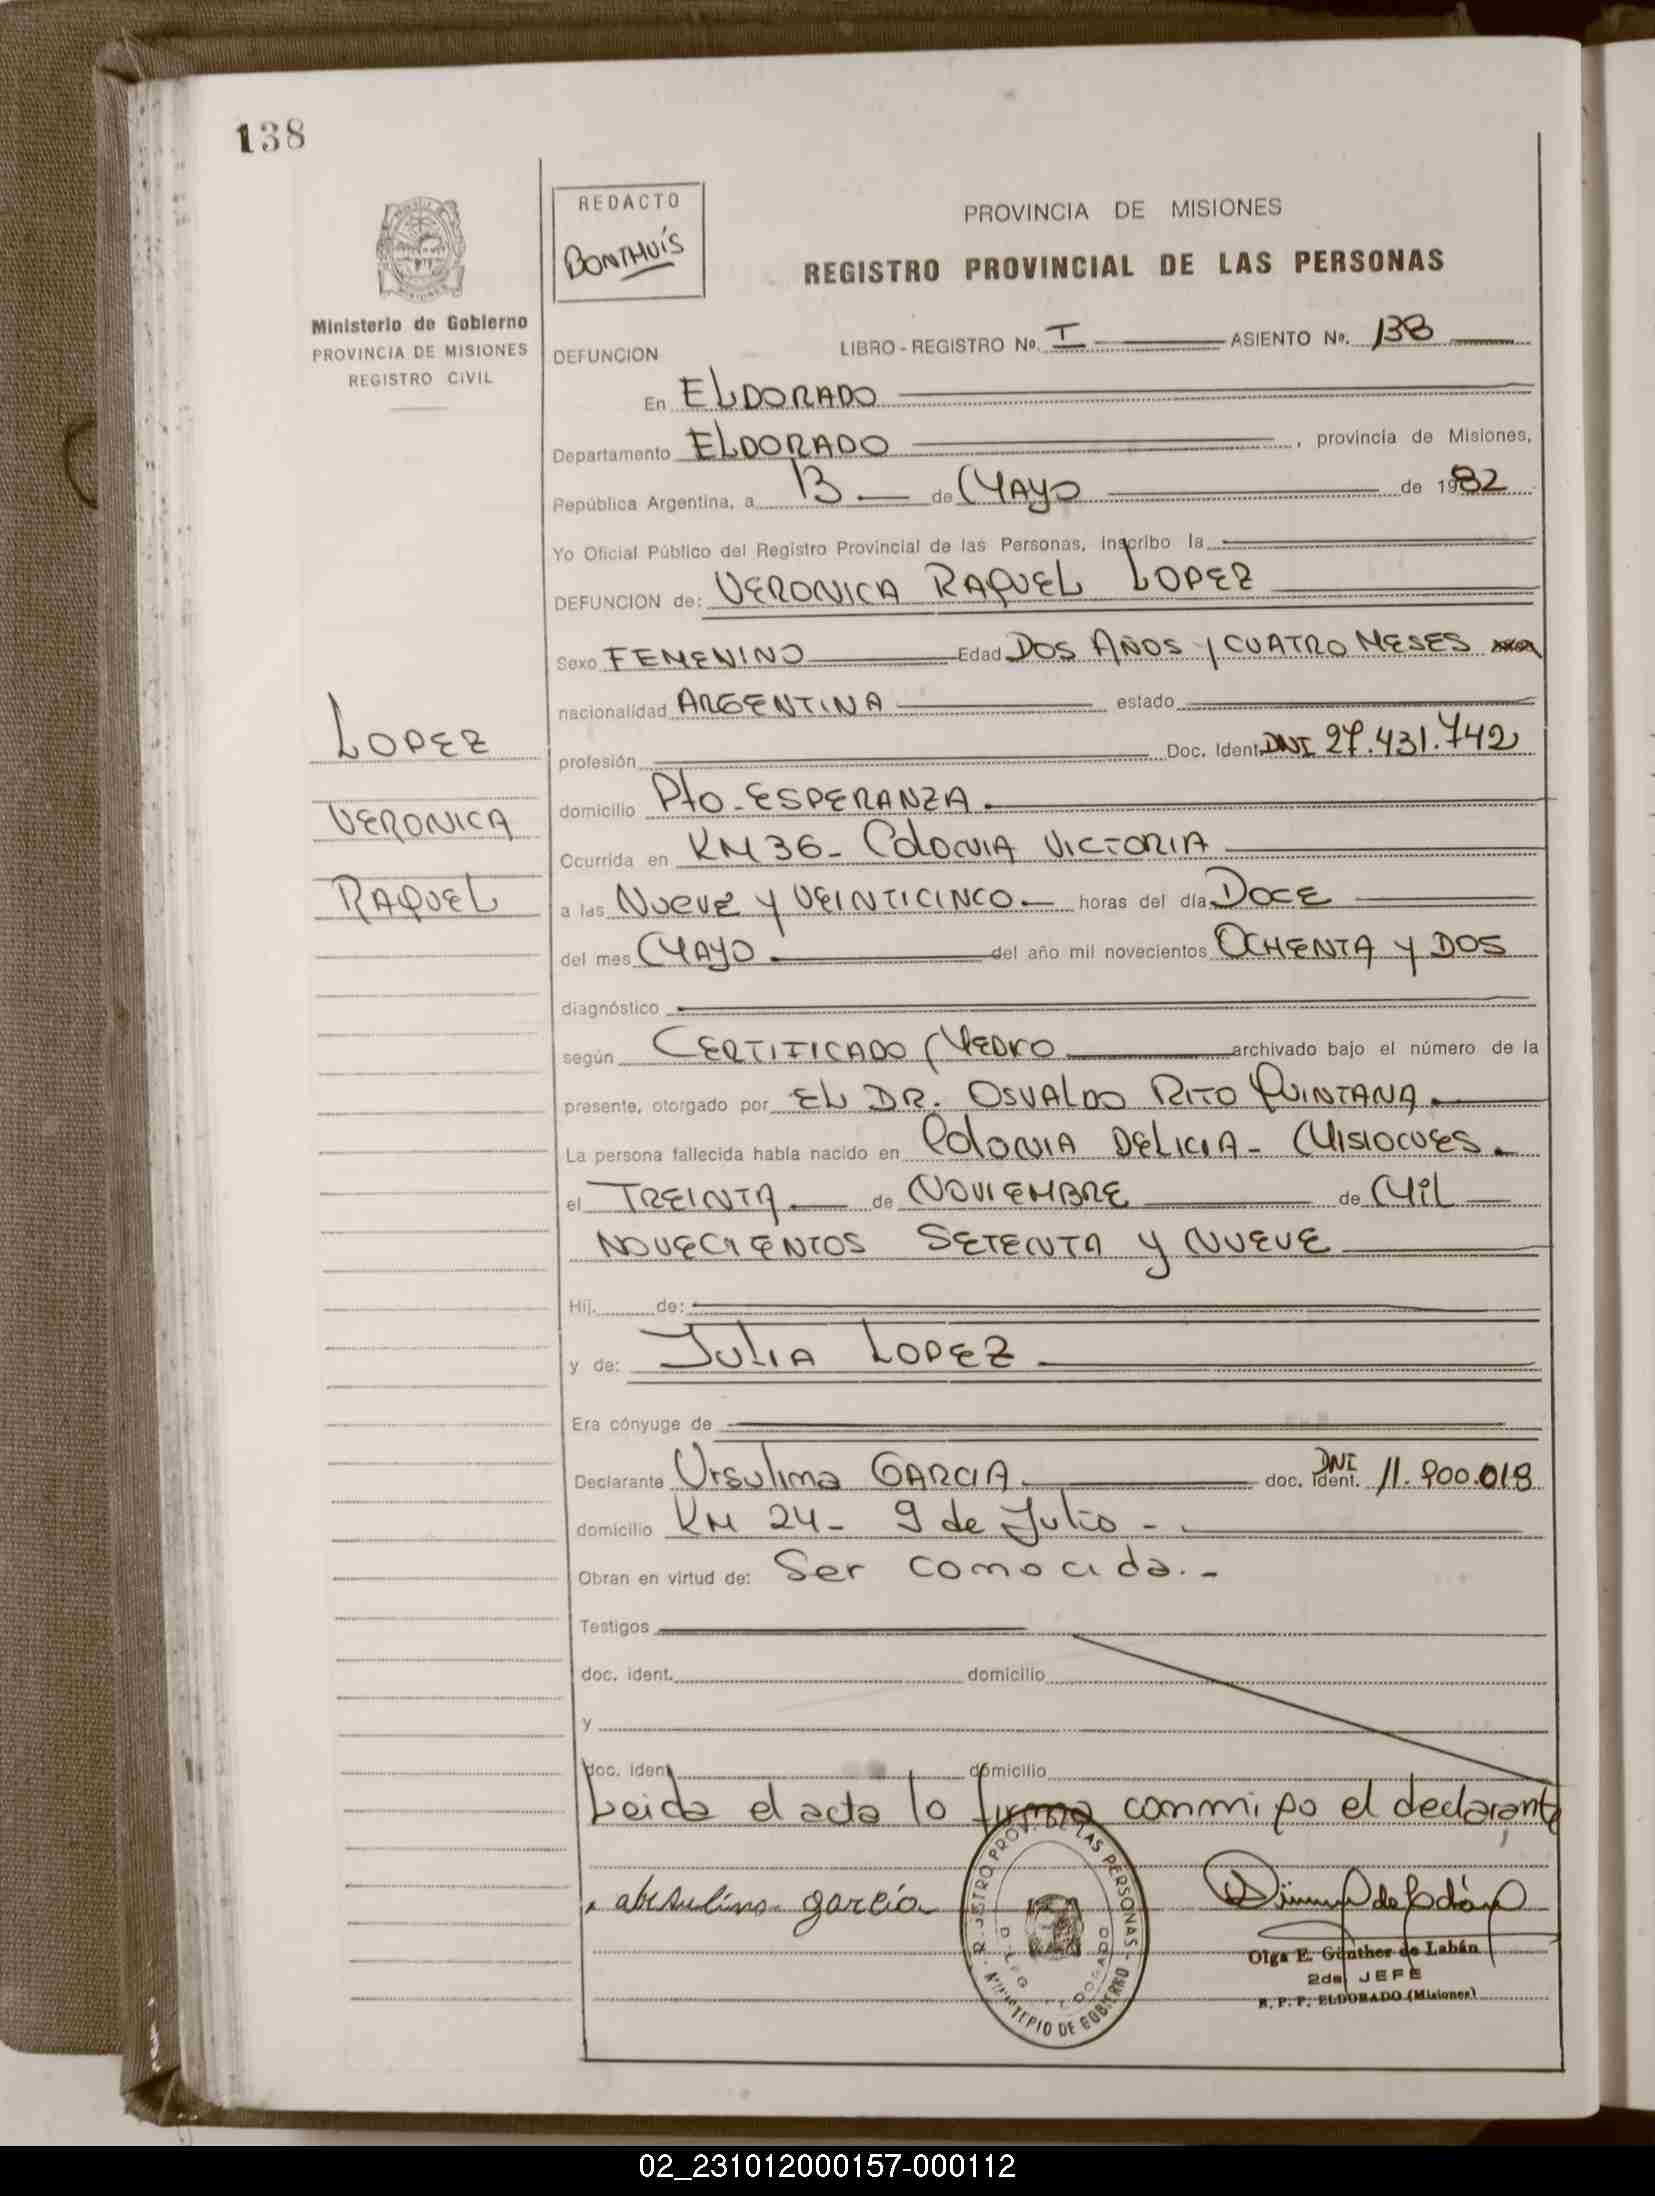 138
REDACTO
BONTHUÍS
PROVINCIA DE MISIONES
REGISTRO PROVINCIAL DE LAS PERSONAS
Ministerio de Gobierno
PROVINCIA DE MISIONES
REGISTRO CIVIL
DEFUNCION LIBRO - REGISTRO No. I ASIENTO No. 138
En ELDORADO
Departamento ELDORADO, provincia de Misiones,
República Argentina, a 13 de MAYO de 1982
Yo Oficial Público del Registro Provincial de las Personas, inscribo la
DEFUNCION de: VERONICA RAQUEL LOPEZ
Sexo FEMENINO Edad DOS AÑOS Y CUATRO MESES
nacionalidad ARGENTINA estado
profesión Doc. Ident. DNI 27.431.742
domicilio Pto. ESPERANZA
Ocurrida en KM 36 - COLONIA VICTORIA
a las NUEVE Y VEINTICINCO horas del día DOCE
del mes MAYO del año mil novecientos OCHENTA Y DOS
diagnóstico
según CERTIFICADO MEDICO archivado bajo el número de la
presente, otorgado por EL DR. OSVALDO RITO QUINTANA
La persona fallecida había nacido en COLONIA DELICIA - MISIONES
el TREINTA de NOVIEMBRE de MIL
NOVECIENTOS SETENTA Y NUEVE
Hij. de:
y de: JULIA LOPEZ
Era cónyuge de
Declarante Ursulina GARCIA doc. ident. DNI 11.900.018
domicilio KM 24 - 9 de Julio -
Obran en virtud de: Ser conocida.-
Testigos
doc. ident. domicilio
y
doc. ident. domicilio
Leida el acta lo firma conmigo el declarante
LOPEZ
VERONICA
RAQUEL
garcía
REGISTRO PROV. DE LAS PERSONAS
DELEG. ELDORADO
MINISTERIO DE GOBIERNO
Olga E. Günther de Labán
2da. JEFE
R. P. P. ELDORADO (Misiones)
02_231012000157-000112